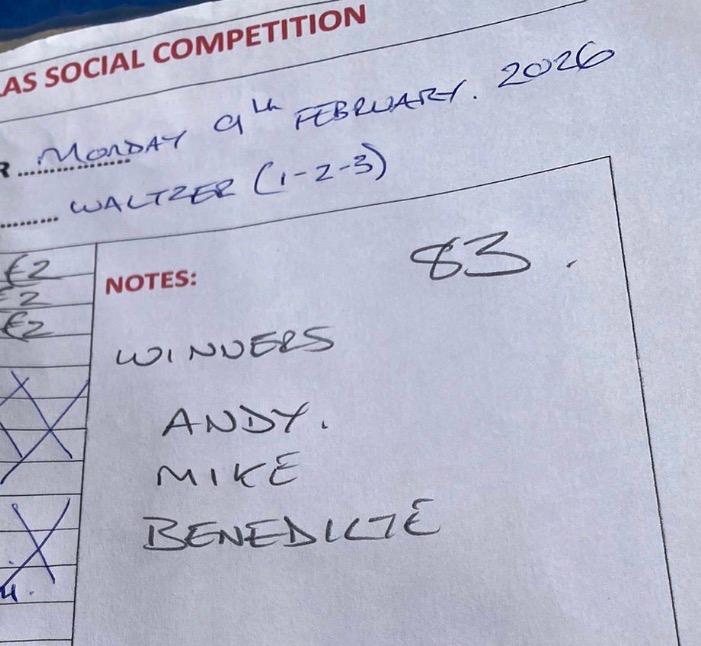 AS SOCIAL COMPETITION
R MONDAY 9th FEBRUARY. 2026
WALTZER (1-2-3)
€2
€2
€2
NOTES:
83.
WINNERS
ANDY.
MIKE
BENEDICTE
4.